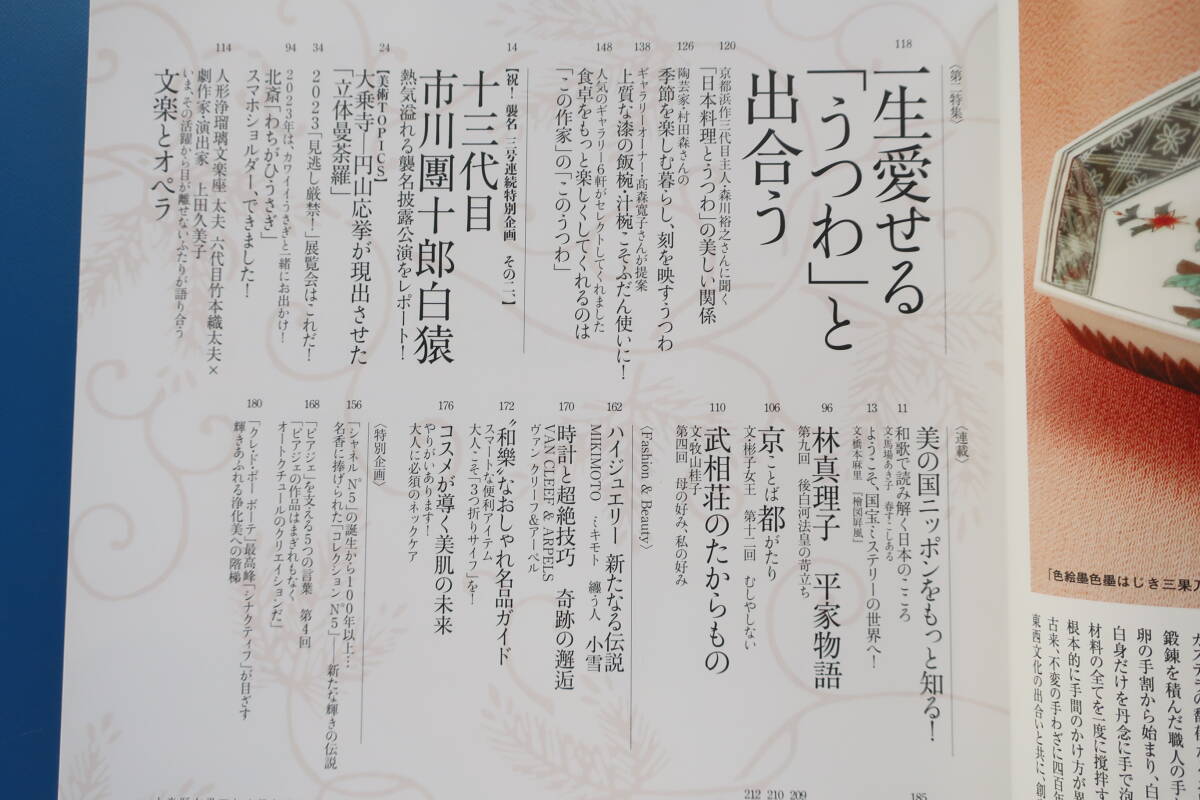 〈第二特集〉
118
一生愛せる
「うつわ」と
出合う
120
京都浜作三代目主人・森川裕之さんに聞く
「日本料理とうつわ」の美しい関係
126
陶芸家・村田森さんの
季節を楽しむ暮らし、刻を映すうつわ
138
ギャラリーオーナー・髙森寛子さんが提案
上質な漆の飯椀・汁椀こそふだん使いに!
148
人気のギャラリー6軒がセレクトしてくれました
食卓をもっと楽しくしてくれるのは
「この作家」の「このうつわ」
14
【祝! 襲名 三号連続特別企画 その二】
十三代目
市川團十郎白猿
熱気溢れる襲名披露公演をレポート!
24
【美術TOPICS】
大乗寺―円山応挙が現出させた
「立体曼荼羅」
34
2023「見逃し厳禁!」展覧会はこれだ!
94
2023年は、カワイイうさぎと一緒にお出かけ!
北斎「わちがひうさぎ」
スマホショルダー、できました!
114
人形浄瑠璃文楽座 太夫 六代目竹本織太夫×
劇作家・演出家 上田久美子
いま、その活躍から目が離せないふたりが語り合う
文楽とオペラ
〈連載〉
美の国ニッポンをもっと知る!
11
和歌で読み解く日本のこころ
文・馬場あき子 春すこしある
13
ようこそ、国宝ミステリーの世界へ!
文・橋本麻里 『檜図屛風』
96
林真理子 平家物語
第九回 後白河法皇の苛立ち
106
京ことば都がたり
文・彬子女王 第十二回 むしやしない
110
武相荘のたからもの
文・牧山桂子
第四回 母の好み、私の好み
〈Fashion & Beauty〉
162
ハイジュエリー 新たなる伝説
MIKIMOTO ミキモト 纏う人 小雪
170
時計と超絶技巧 奇跡の邂逅
VAN CLEEF & ARPELS
ヴァン クリーフ&アーペル
172
“和樂”なおしゃれ名品ガイド
スマートな便利アイテム
大人こそ「3つ折りサイフ」を!
176
コスメが導く美肌の未来
やりがいあります!
大人に必須のネックケア
〈特別企画〉
156
「シャネル N°5」の誕生から100年以上…
名香に捧げられた「コレクション N°5」――新たな輝きの伝説
168
「ピアジェ」を支える5つの言葉 第4回
「ピアジェの作品はまぎれもなく
オートクチュールのクリエイションだ」
180
「クレ・ド・ポー ボーテ」最高峰「シナクティフ」が目ざす
輝きあふれる浄化美への階梯
185
209
210
212
「色絵墨色墨はじき三果
鍛錬を積んだ職人の手
卵の手割から始まり、白
白身だけを丹念に手で泡
材料の全てを一度に撹拌す
根本的に手間のかけ方が異
古来、不変の手わざに四百年
東西文化の出合いと共に、創